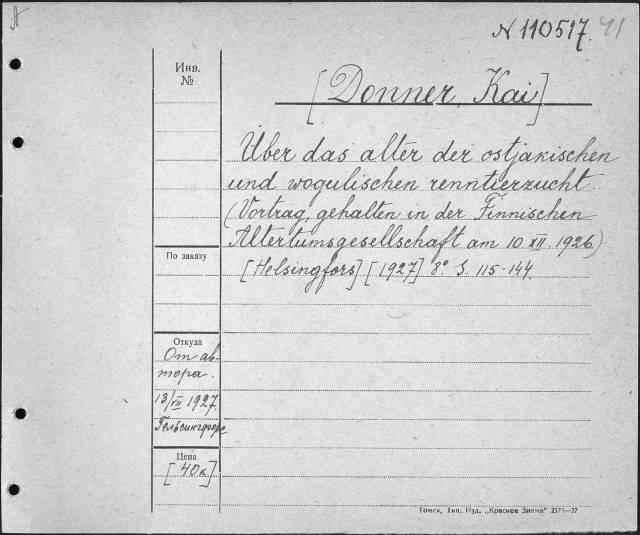 N 110517. 41
Инв.
№
[Donner, Kai]
Über das alter der ostjakischen
und wogulischen renntierzucht.
(Vortrag, gehalten in der Finnischen
Altertumsgesellschaft am 10. XII. 1926.)
[Helsingfors] [1927] 8° S. 115-144.
По заказу
Откуда
От ав-
тора.
13/VII 1927.
Гельсингфорс
Цена
[40к.]
Томск, Тип. Изд. „Красное Знамя" 2575—27